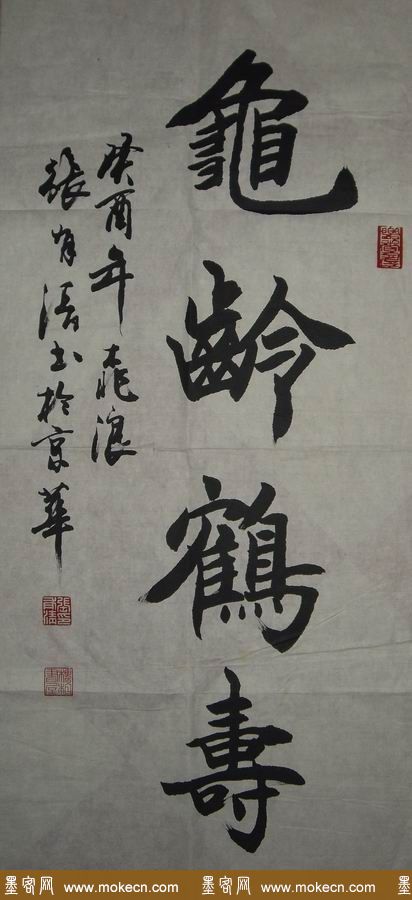 龜齡鶴壽
癸酉年桃浪
張有清书於京華
墨客网 www.mokecn.com 墨客网 www.mokecn.com